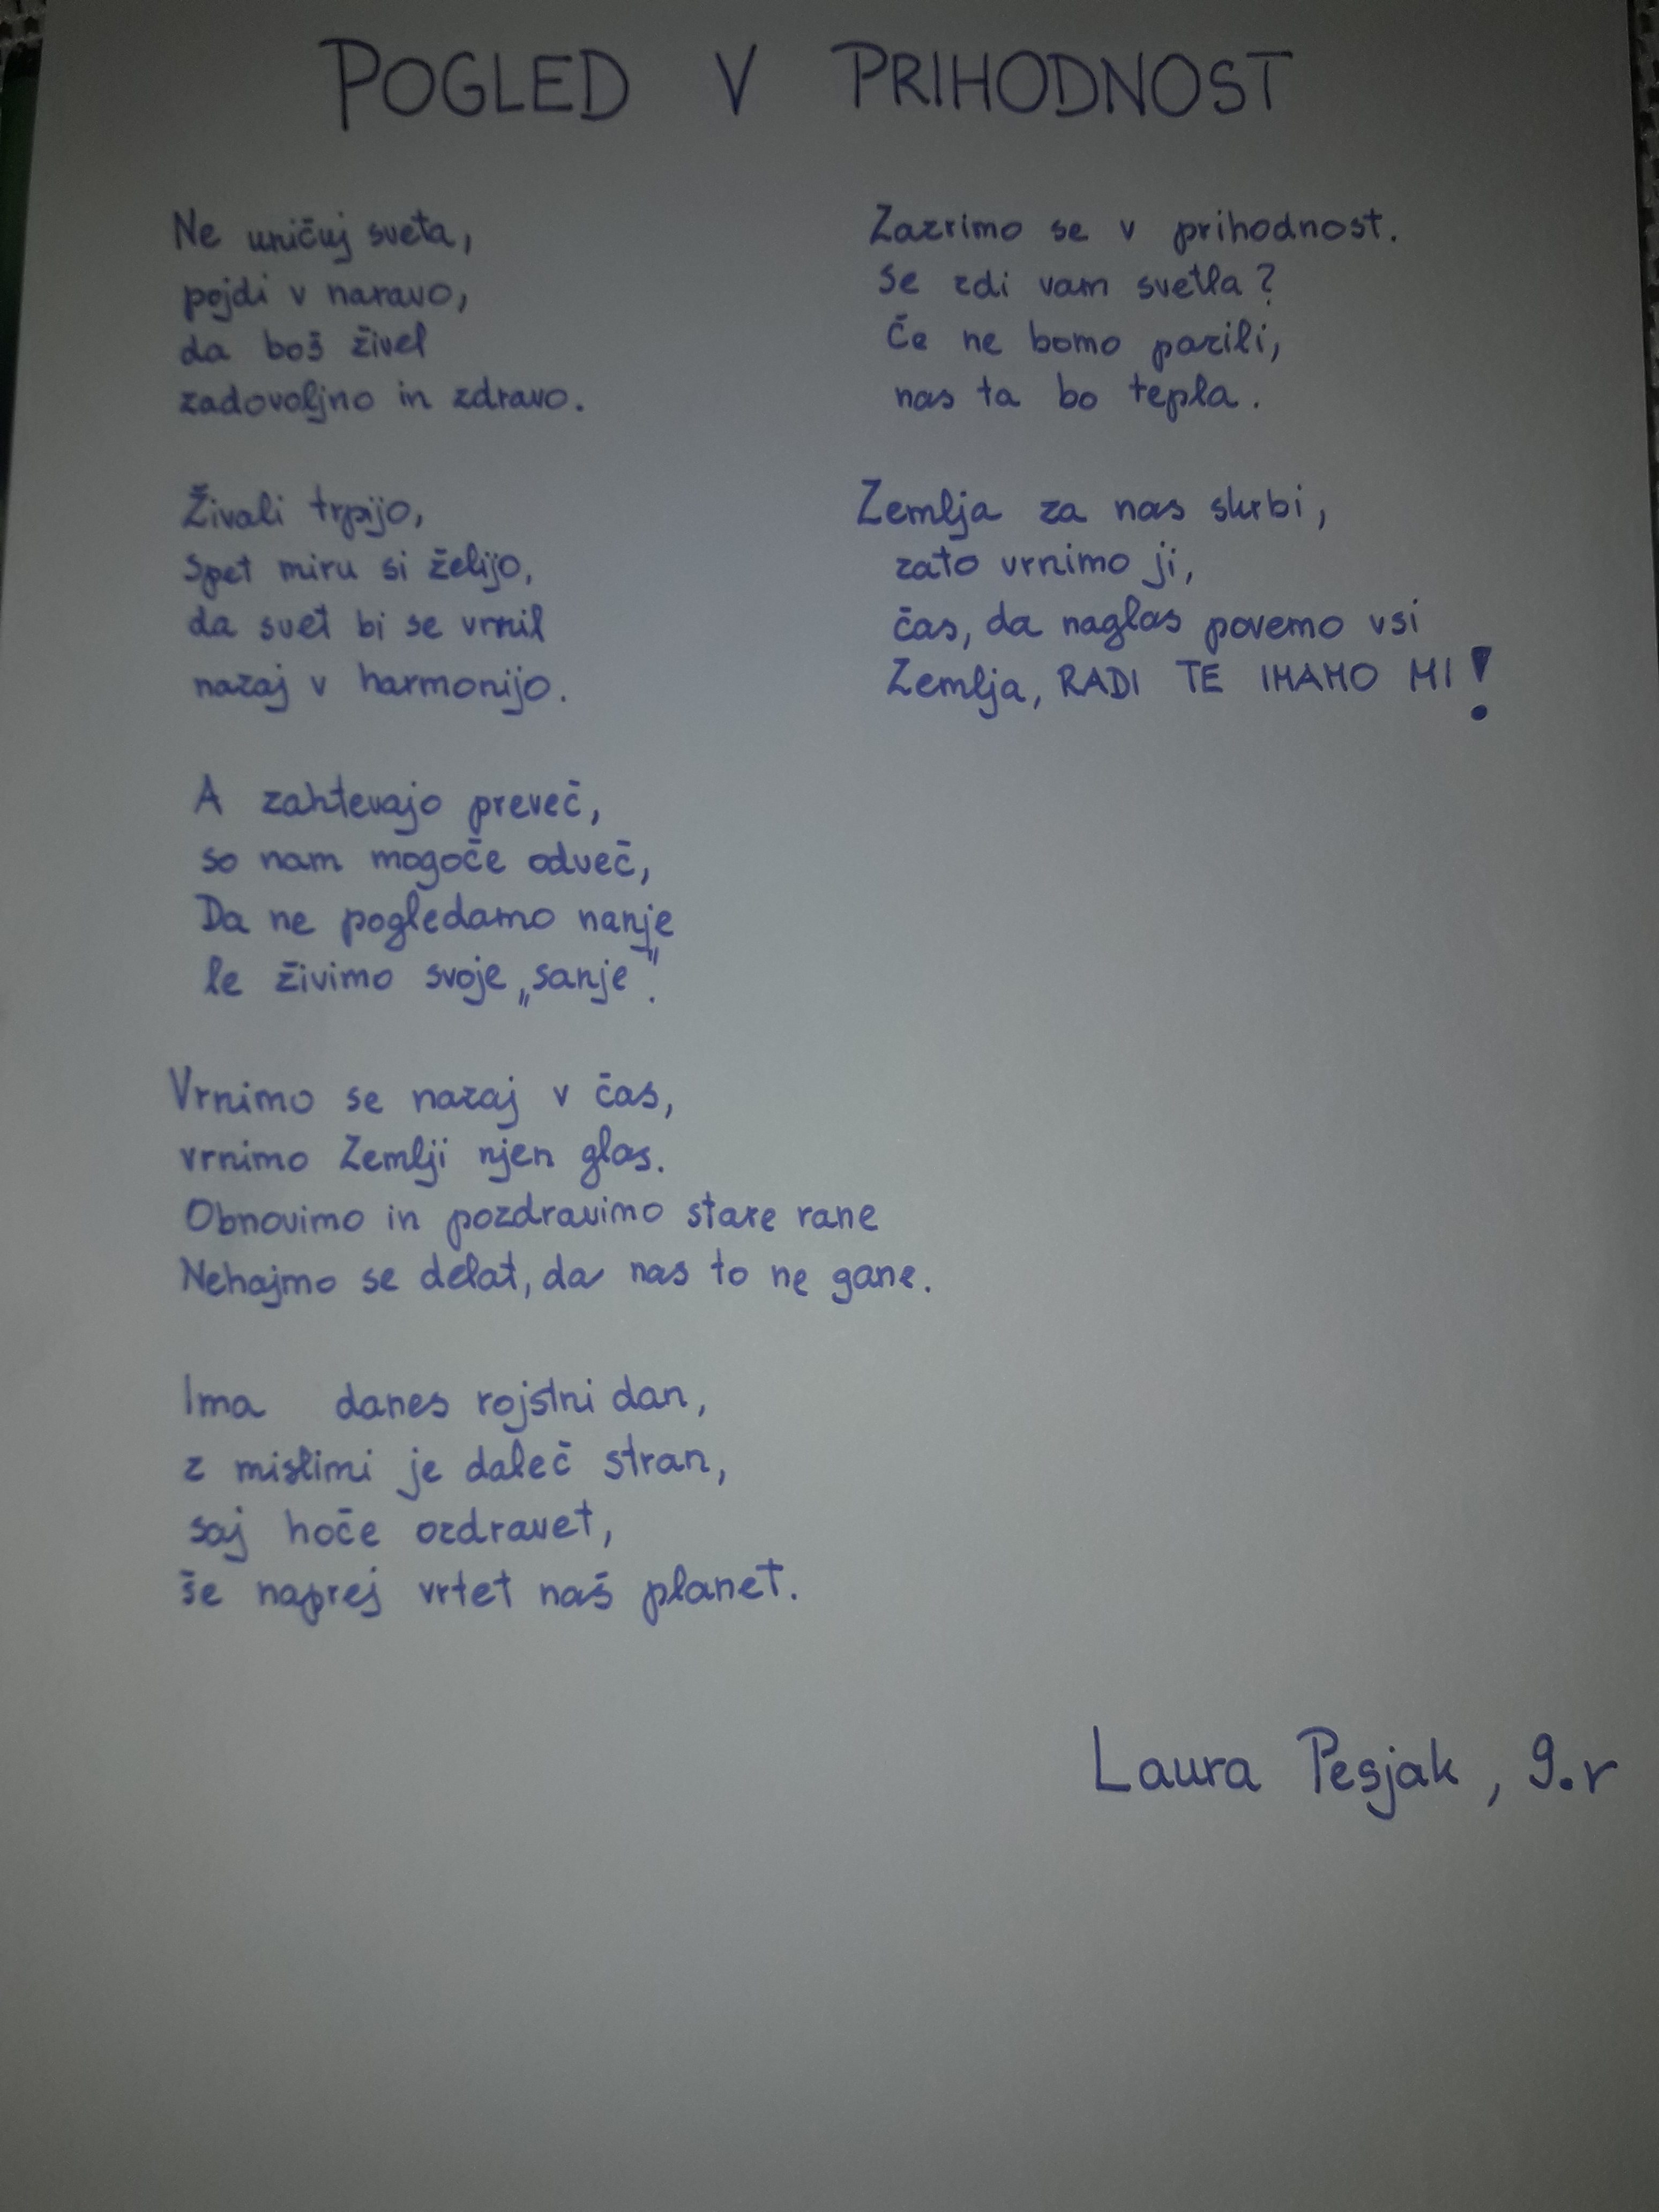 POGLED V PRIHODNOST
Ne uničuj sveta,
pojdi v naravo,
da boš živel
zadovoljno in zdravo.
Živali trpijo,
spet miru si želijo,
da svet bi se vrnil
nazaj v harmonijo.
A zahtevajo preveč,
so nam mogoče odveč,
Da ne pogledamo nanje
le živimo svoje „sanje".
Vrnimo se nazaj v čas,
vrnimo Zemlji njen glas.
Obnovimo in pozdravimo stare rane
Nehajmo se delat, da nas to ne gane.
Ima danes rojstni dan,
z mislimi je daleč stran,
saj hoče ozdravet,
še naprej vrtet naš planet.
Zazrimo se v prihodnost.
Se zdi vam svetla?
Če ne bomo pazili,
nas ta bo tepla.
Zemlja za nas skrbi,
zato vrnimo ji,
čas, da naglas povemo vsi
Zemlja, RADI TE IMAMO MI!
Laura Pesjak, 9.r